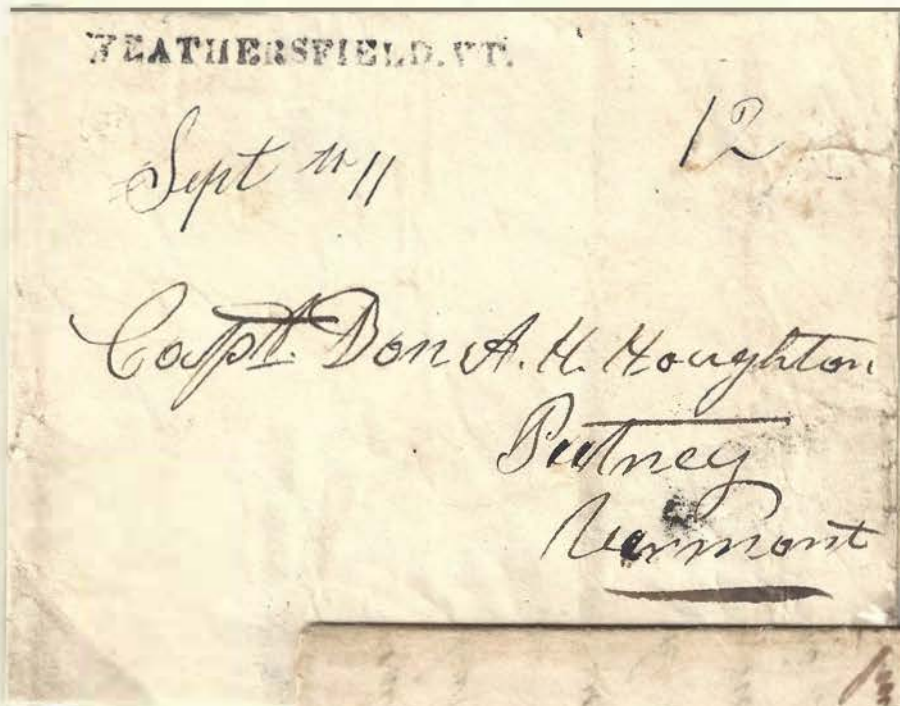 WEATHERSFIELD.VT.
Sept 11 12
Capt. Don A. H. Houghton
Putney
Vermont